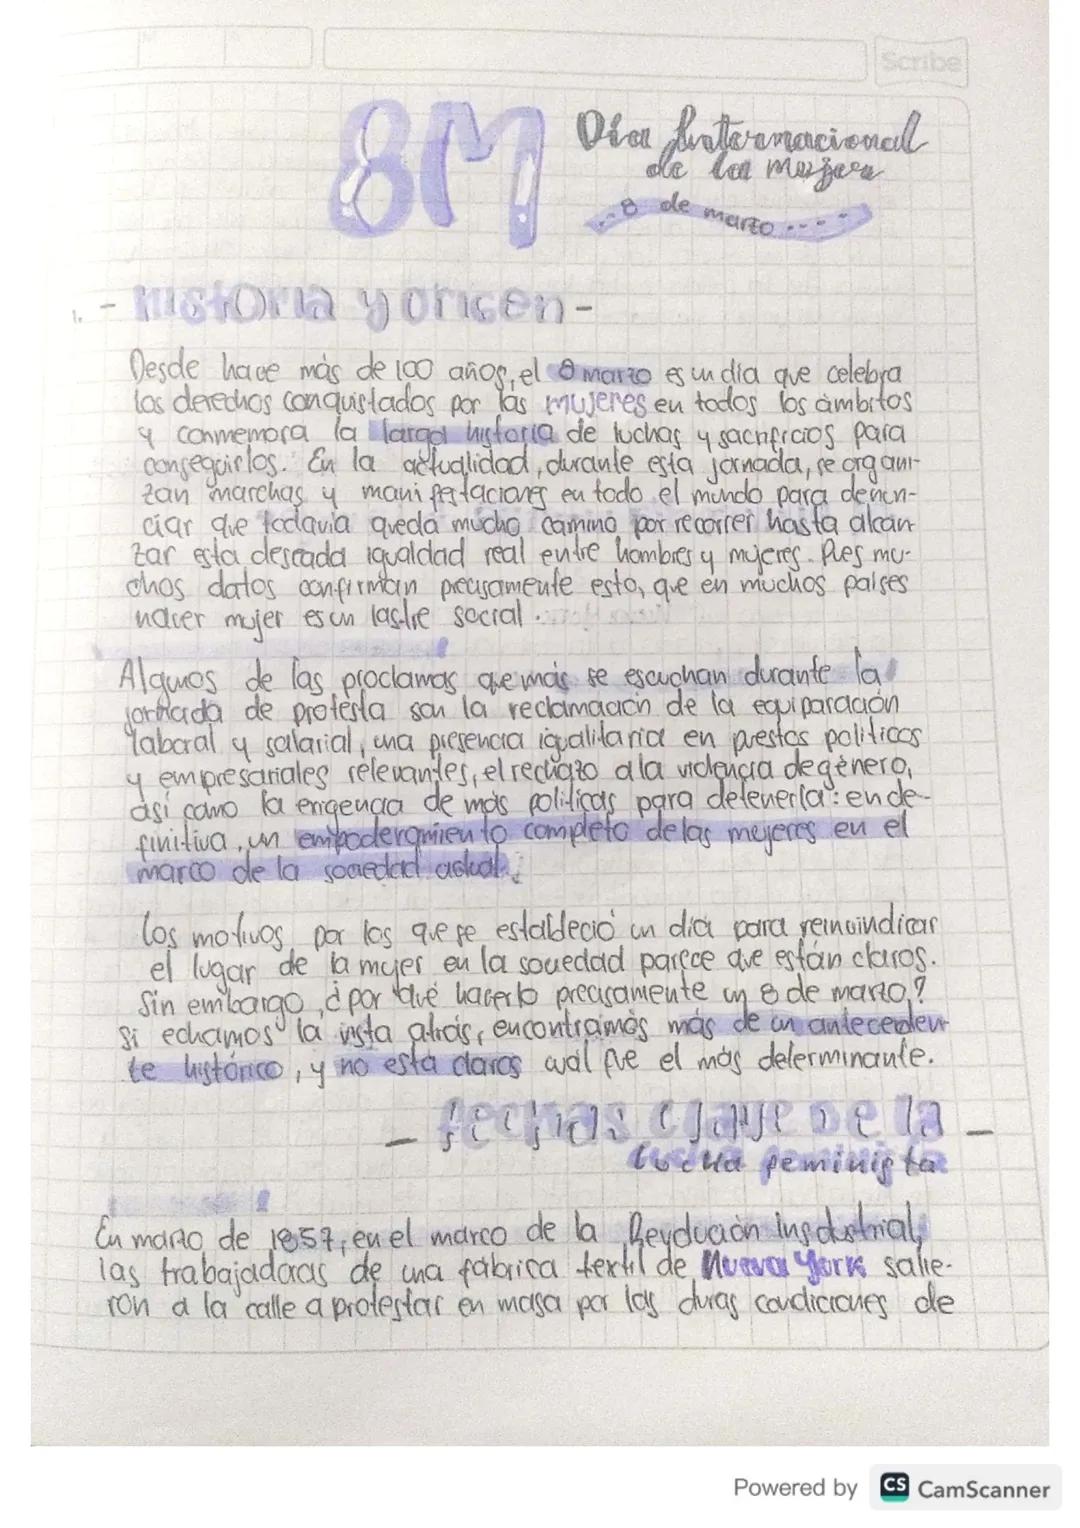 Scribe
8M
Día Internacional
de la mujer
8 de marzo
1. - historia y origen -
Desde hace más de 100 años, el 8 marzo es un día que celebra
los derechos conquistados por las mujeres en todos los ámbitos
y conmemora la larga historia de luchas y sacrificios para
conseguirlos. En la actualidad, durante esta jornada, se organi-
zan marchas y manifestaciones en todo el mundo para denun-
ciar que todavía queda mucho camino por recorrer hasta alcan
zar esta deseada igualdad real entre hombres y mujeres. Pues mu-
chos datos confirman precisamente esto, que en muchos países
nacer mujer es un lastre social.
Algunos de las proclamas que más se escuchan durante la
jornada de protesta son la reclamación de la equiparación
laboral y salarial, una presencia igualitaria en puestos políticos
y empresariales relevantes, el rechazo a la violencia de género,
así como la exigencia de más políticas para detenerla: en de-
finitiva, un empoderamiento completo de las mujeres en el
marco de la sociedad actual.
Los motivos por los que se estableció un día para reinvindicar
el lugar de la mujer en la sociedad parece que están claros.
Sin embargo, ¿por qué hacerlo precisamente un 8 de marzo?
Si echamos la vista atrás, encontramos más de un anteceden-
te histórico, y no está claros cuál fue el más determinante.
- fechas clave de la -
lucha feminista
En marzo de 1857, en el marco de la Revolución Insdustrial,
las trabajadoras de una fábrica textil de Nueva York salie-
ron a la calle a protestar en masa por las duras condiciones de
Powered by CS CamScanner